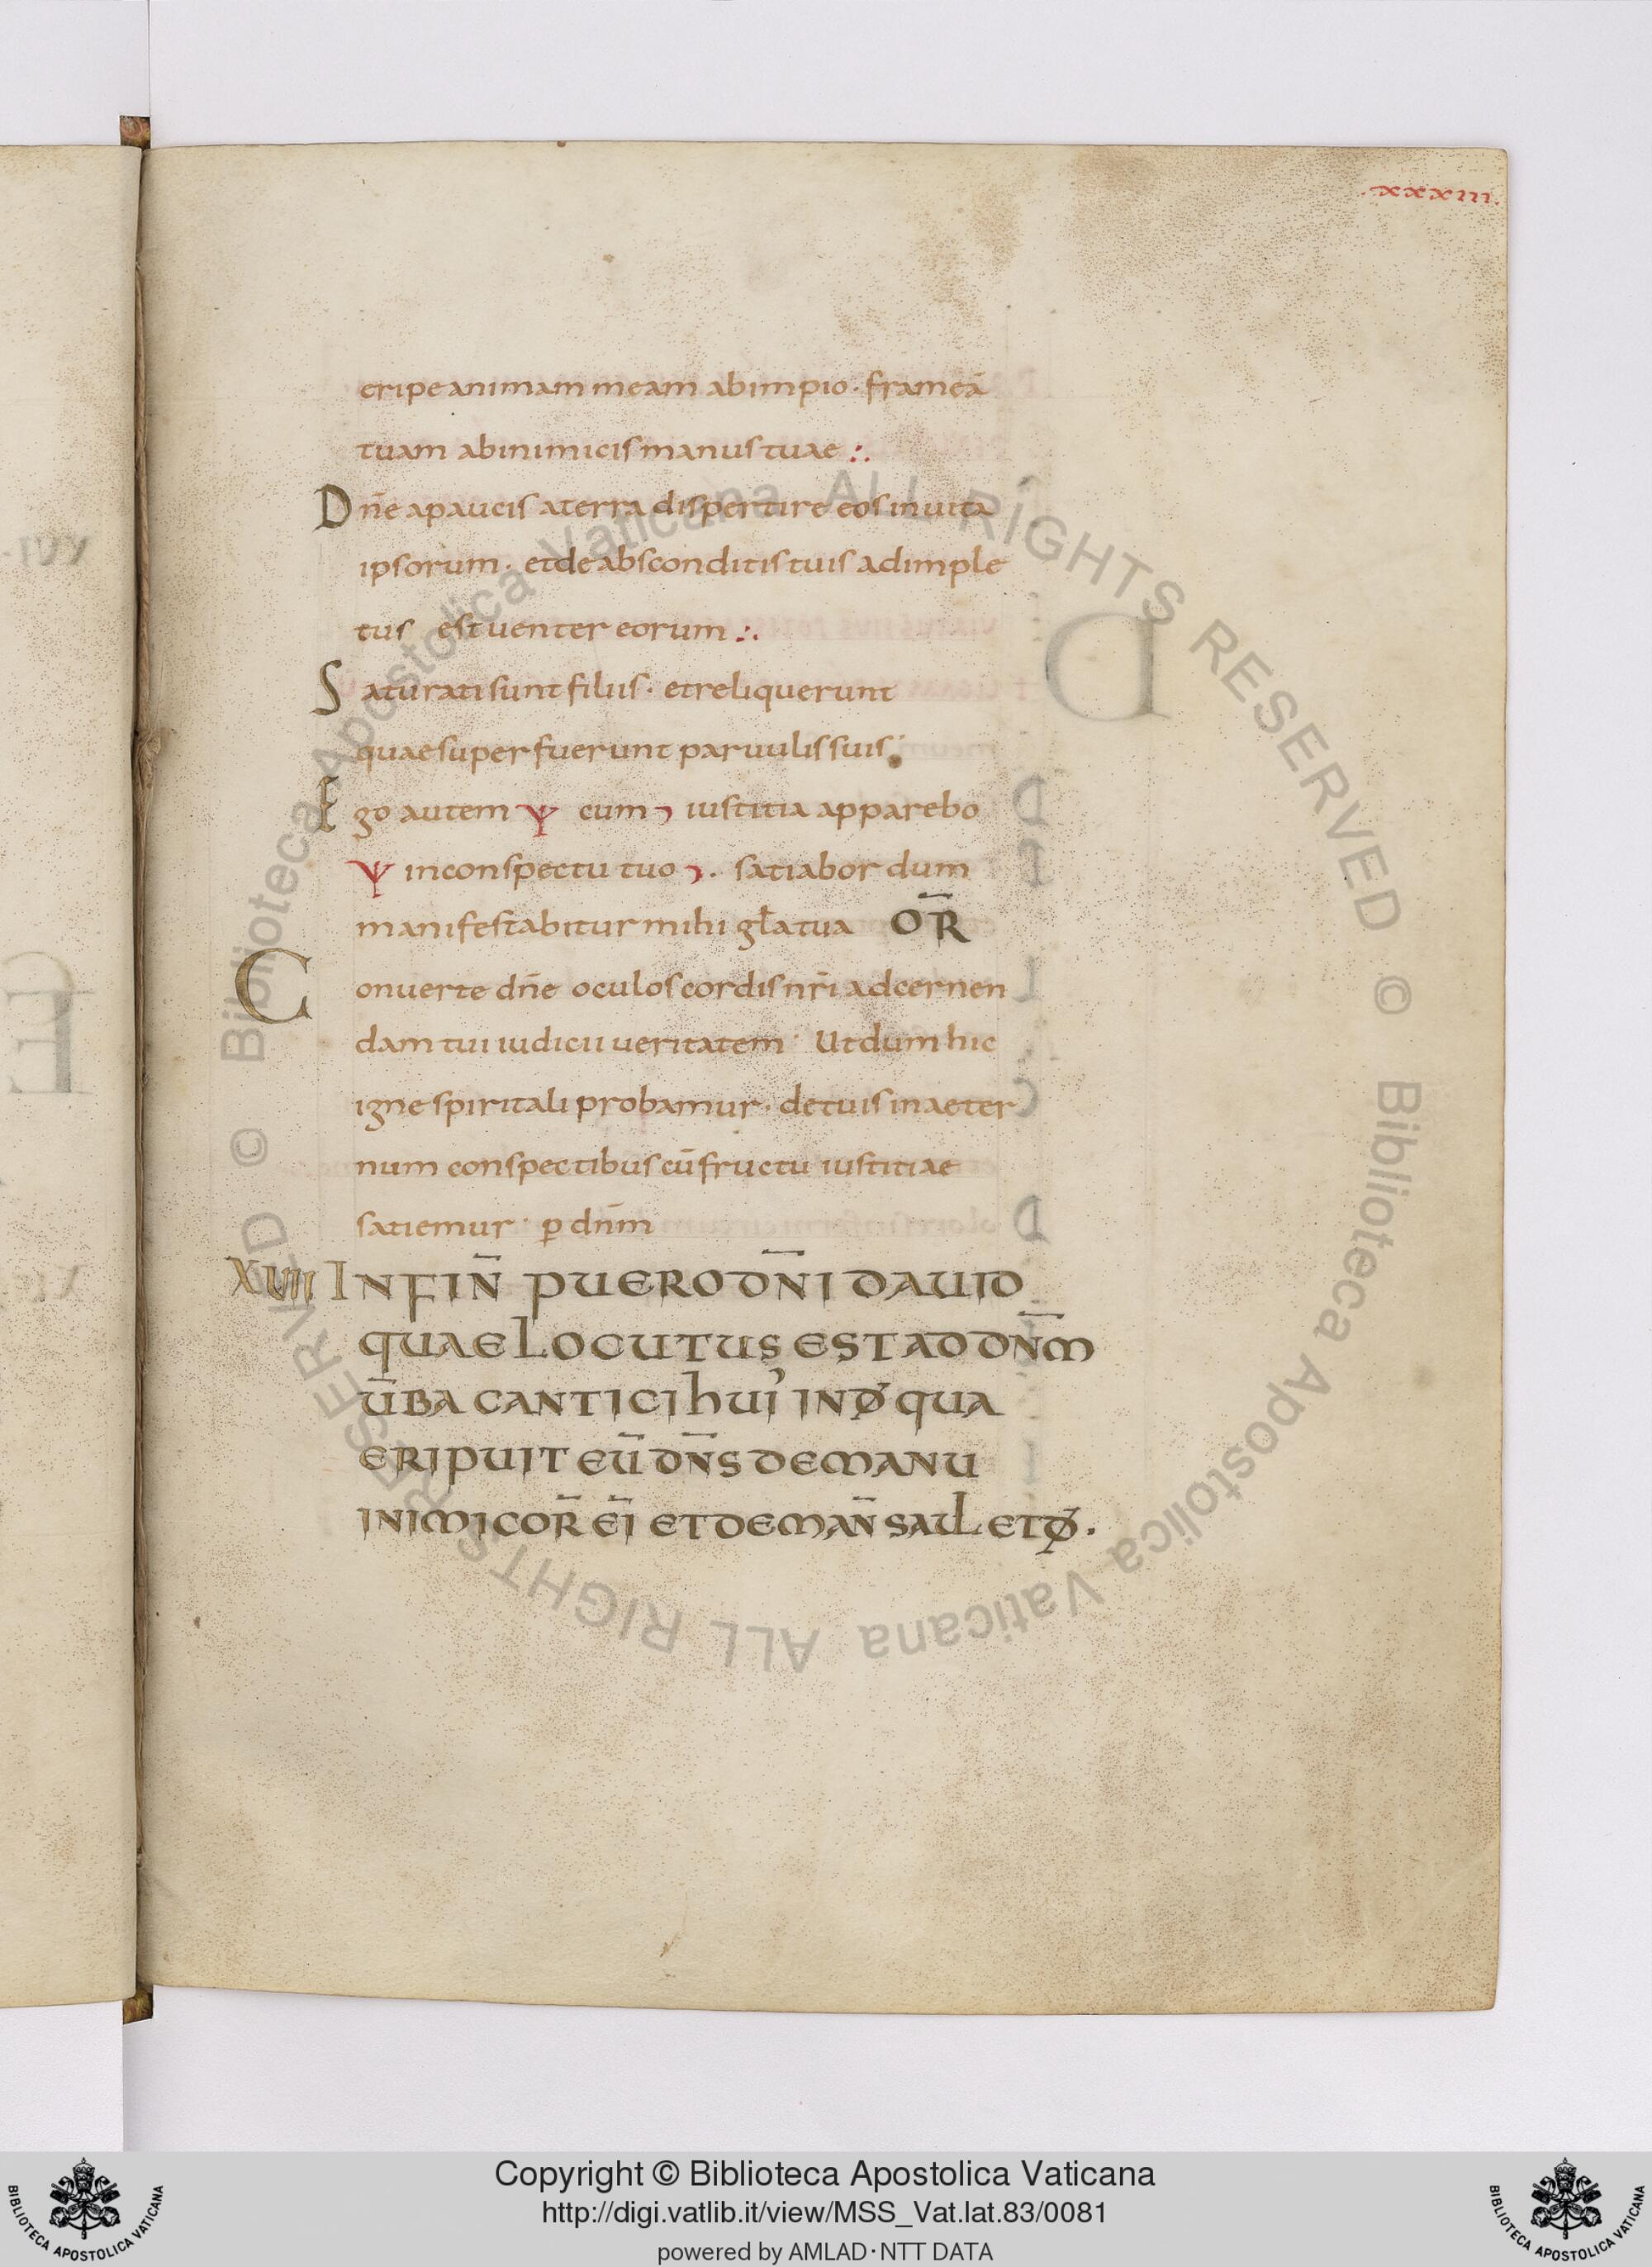 .xxxiii.
eripe animam meam ab impio · frameā
tuam ab inimicis manus tuae :.
Dn̄e a paucis a terra dispertire eos in uita
ipsorum · et de absconditis tuis adimple
tus est uenter eorum :.
Saturati sunt filiis · et reliquerunt
quae superfuerunt paruulis suis :
Ego autem Ψ cum ⁊ iustitia apparebo
Ψ in conspectu tuo ⁊ . satiabor dum
manifestabitur mihi gl̄a tua OR̄
Conuerte dn̄e oculos cordis nr̄i ad cernen
dam tui iudicii ueritatem · Ut dum hic
igne spiritali probamur · de tuis in aeter
num conspectibus cū fructu iustitiae
satiemur · ꝑ dnm̄
XVII IN FIN̄ PUERO DN̄I DAUID
QUAE LOCUTUS EST AD DN̄M
ŪBA CANTICI HUI᾽ IN Đ QUA
ERIPUIT EŪ DN̄S DE MANU
INIMICOR̄ EĪ ET DE MAN̄ SAUL ET Đ.
© Biblioteca Apostolica Vaticana ALL RIGHTS RESERVED © Biblioteca Apostolica Vaticana ALL RIGHTS RESERVED
Copyright © Biblioteca Apostolica Vaticana
http://digi.vatlib.it/view/MSS_Vat.lat.83/0081
powered by AMLAD·NTT DATA
BIBLIOTECA APOSTOLICA VATICANA
BIBLIOTECA APOSTOLICA VATICANA